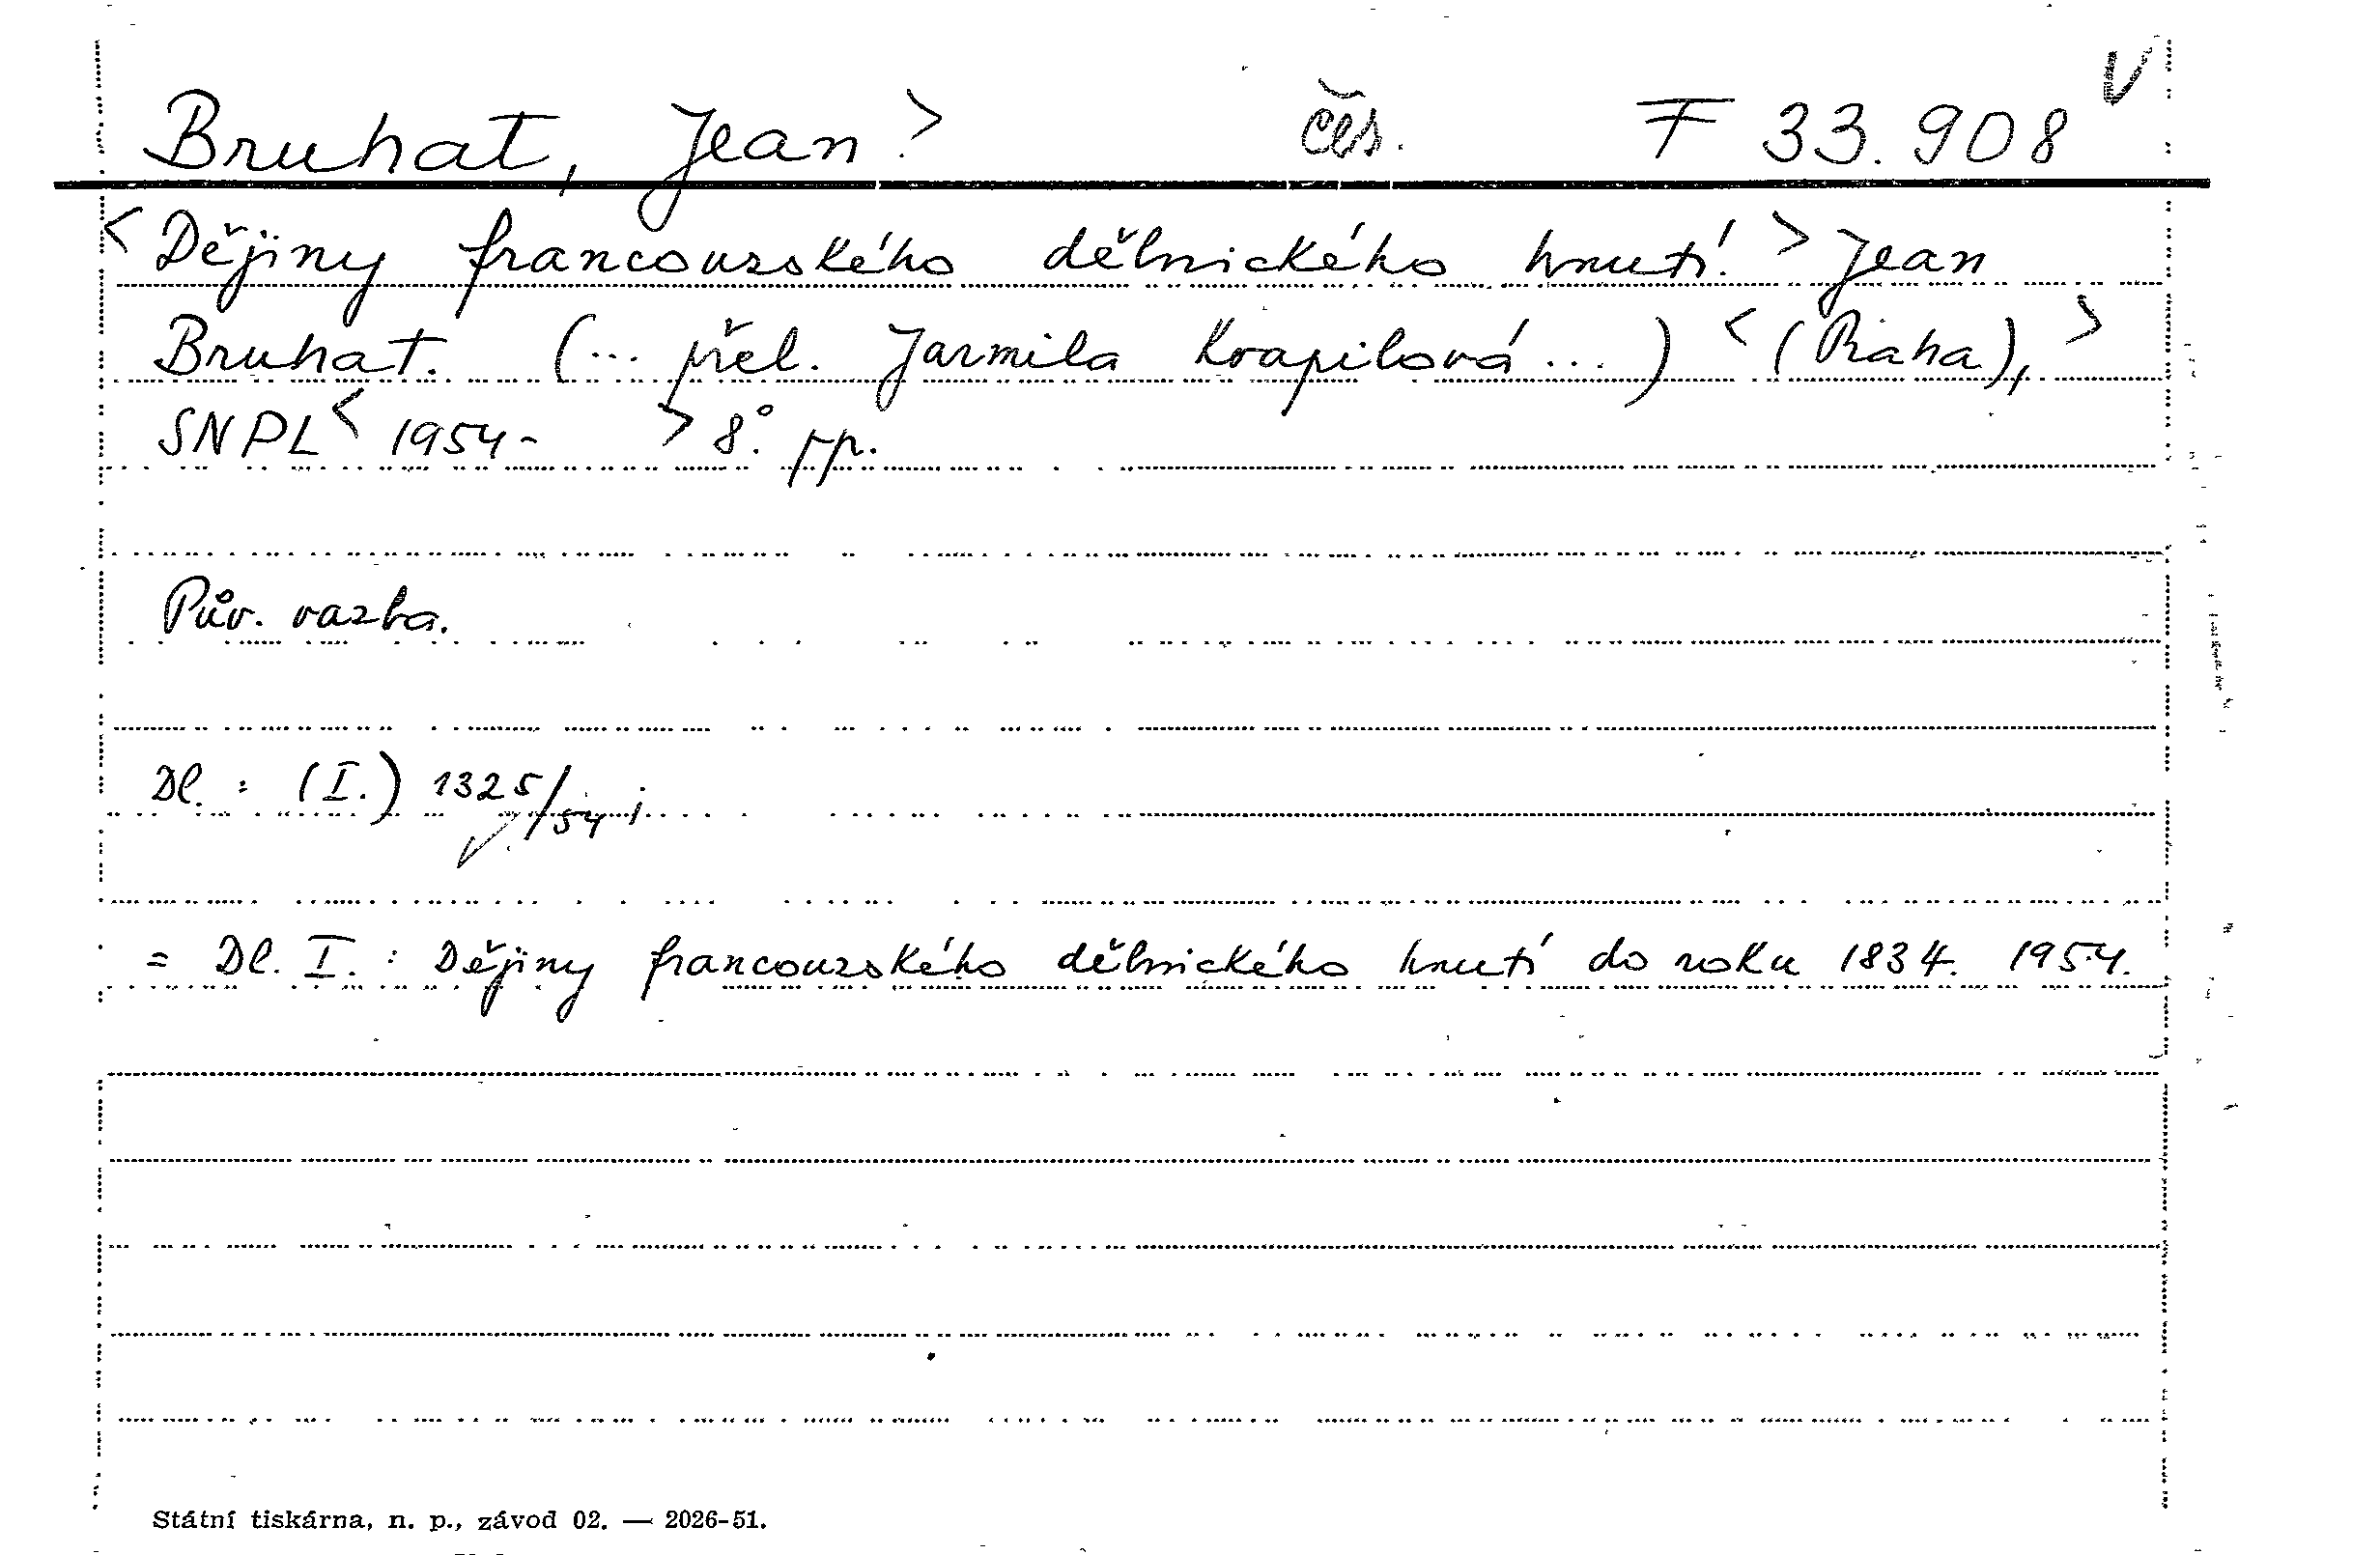 Bruhat, Jean.> čes. F 33.908 V
<Dějiny francouzského dělnického hnutí.> Jean
Bruhat. (... přel. Jarmila Kvapilová...) <(Praha),>
SNPL< 1954- > 8°. pp.
Pův. vazba.
Dl. : (I.) 1325/54 j
= Dl. I. : Dějiny francouzského dělnického hnutí do roku 1834. 1954.
Státní tiskárna, n. p., závod 02. — 2026-51.